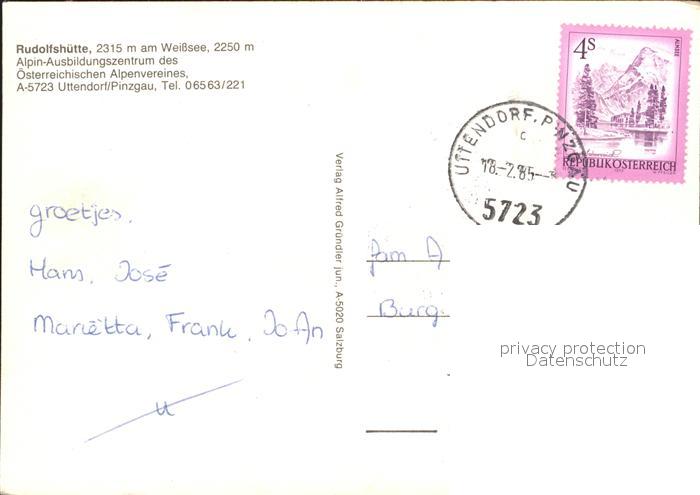 Rudolfshütte, 2315 m am Weißsee, 2250 m
Alpin-Ausbildungszentrum des
Österreichischen Alpenvereines,
A-5723 Uttendorf/Pinzgau, Tel. 06563/221
4s
ALMSEE
REPUBLIK ÖSTERREICH
UTTENDORF, PINZGAU
c
18.-2.85--
5723
Verlag Alfred Gründler jun., A-5020 Salzburg
groetjes,
Hans, José
Mariëtta, Frank, JoAn
Fam A
Burg
privacy protection
Datenschutz